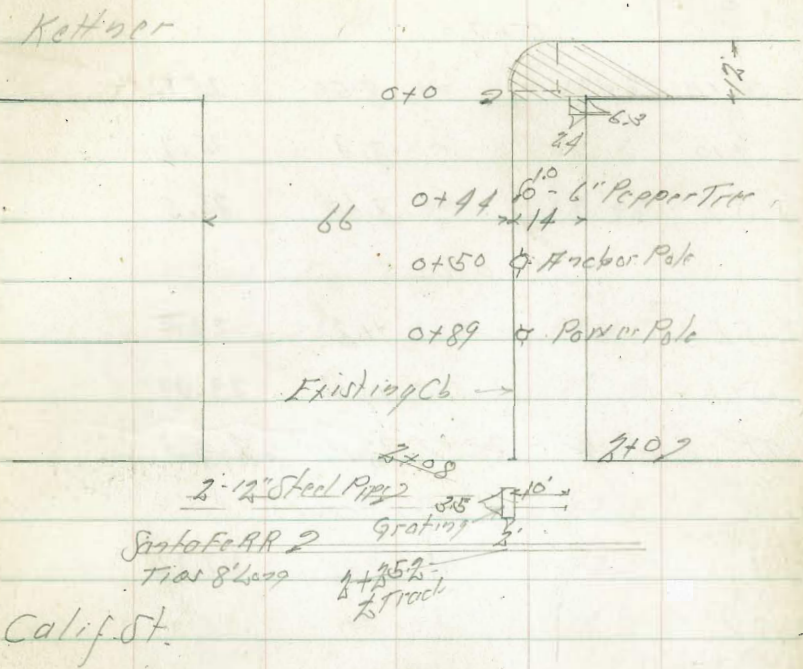 Kettner
0+0 2 12'
2.4 6.3
0+44 1.0 - 6" Pepper Tree
66 14
0+50 Anchor Pole
0+89 Power Pole
Existing Cb
2+08 2+02
2-12" Steel Pipes 3.5 10'
Grating
Santa Fe RR 2 2'
Ties 8' Long 2+25.2
Track
Calif. St.